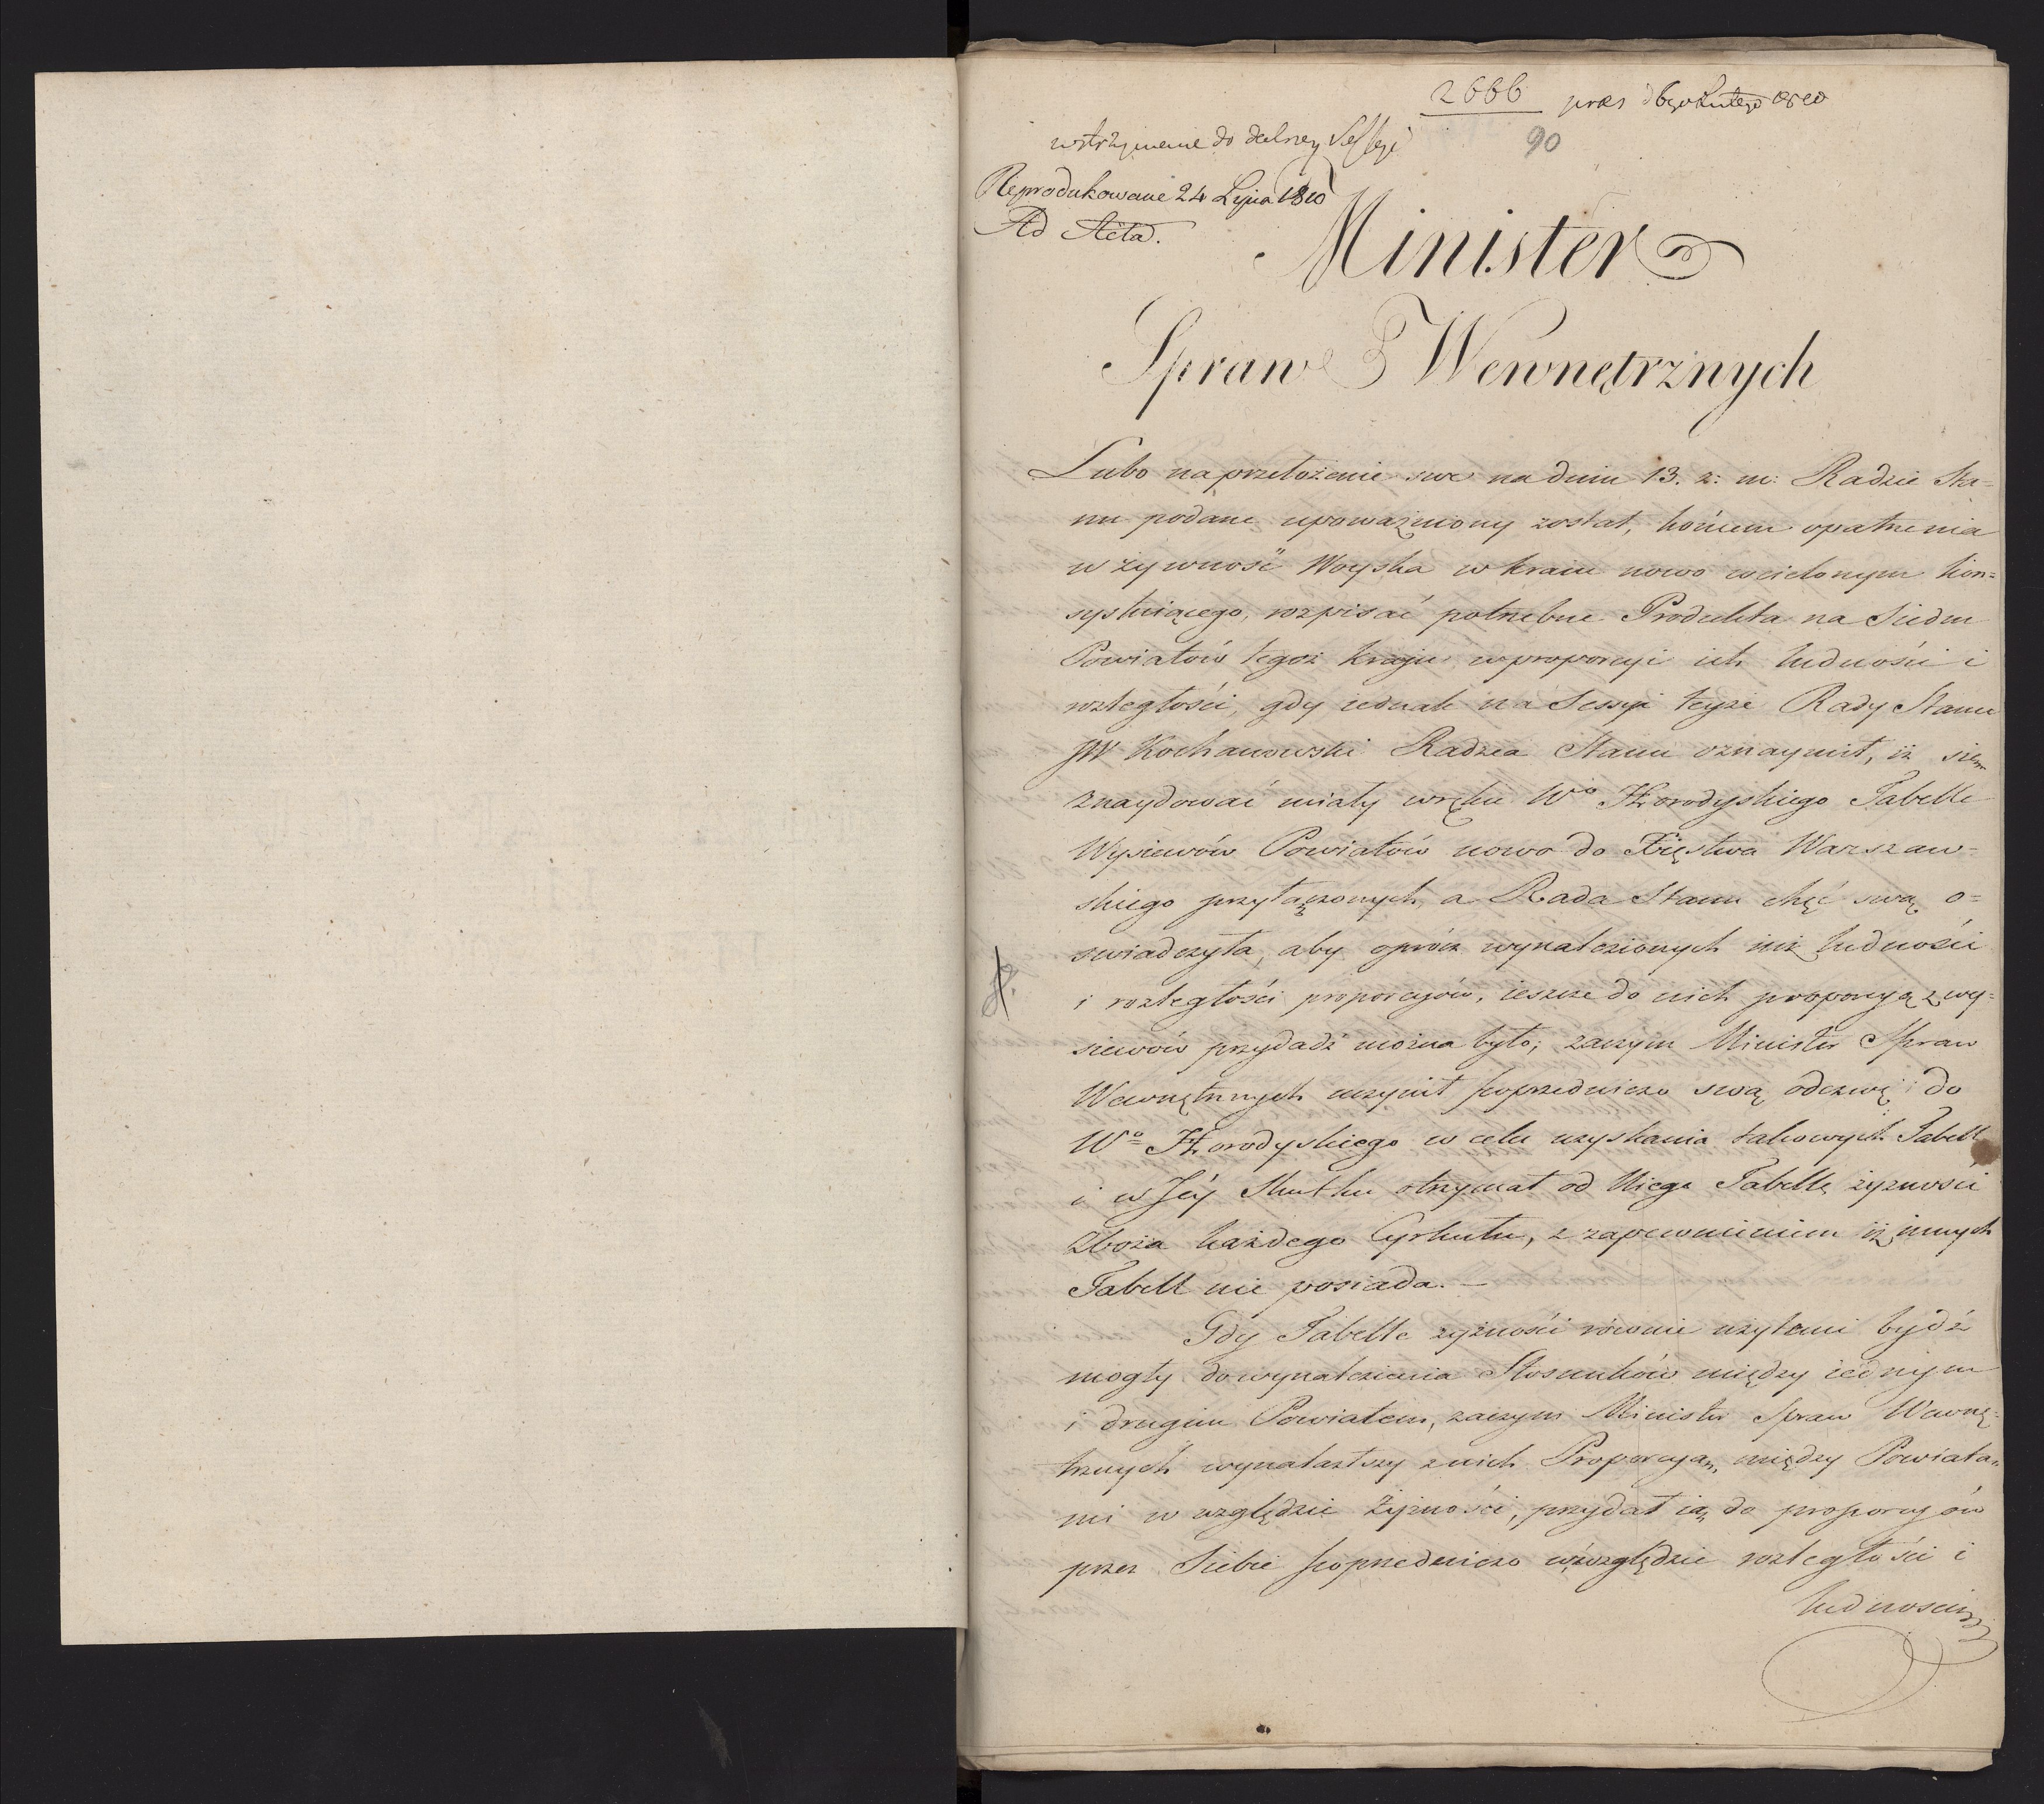 2666 pres 6go Lutego 1810
90
wstrzymane do dalszey Sessyi
Reprodukowane 24 Lipca 1810
Ad Acta.
Minister
Spraw Wewnętrznych
Lubo na przełożenie swe na dniu 13. z: m: Radzie Sta=
nu podane upoważniony został, końcem opatrzenia
w żywność Woyska w kraiu nowo wcielonym kon=
systuiącego, rozpisać potrzebne Produkta na Siedm
Powiatów tegoż kraju, w proporcyi ich ludności i
rozległości, gdy iednak na Sessyi teyże Rady Stanu
JW Kochanowski Radzca Stanu oznaymił, iż się
znaydować miały w ręku Wo Horodyskiego Tabelle
Wysiewów Powiatów nowo do Xięstwa Warszaw=
skiego przyłączonych, a Rada Stanu chęć swą o=
swiadczyła, aby oprócz wynalezionych iuż ludności
i rozległości proporcyów, ieszcze do nich proporcyą z wy=
siewów przydadź można było; zaczym Minister Spraw
Wewnętrznych uczynił poprzedniczo swą odezwę do
Wo Horodyskiego w celu uzyskania takowych Tabell
i w Jéy Skutku otrzymał od Niego Tabellę żyzności
Zboża każdego Cyrkułu, z zapewnieniem iż innych
Tabell nie posiada. —
Gdy Tabelle żyzności równie użytemi bydź
mogły do wynalezienia Stosunków między iednym
i drugim Powiatem, zaczym Minister Spraw Wewnę=
trznych wynalazłszy z nich Proporcyą, między Powiata=
mi w względzie Żyzności, przydał ią do proporcyów
przez Siebie poprzedniczo w względzie rozległości i
ludności